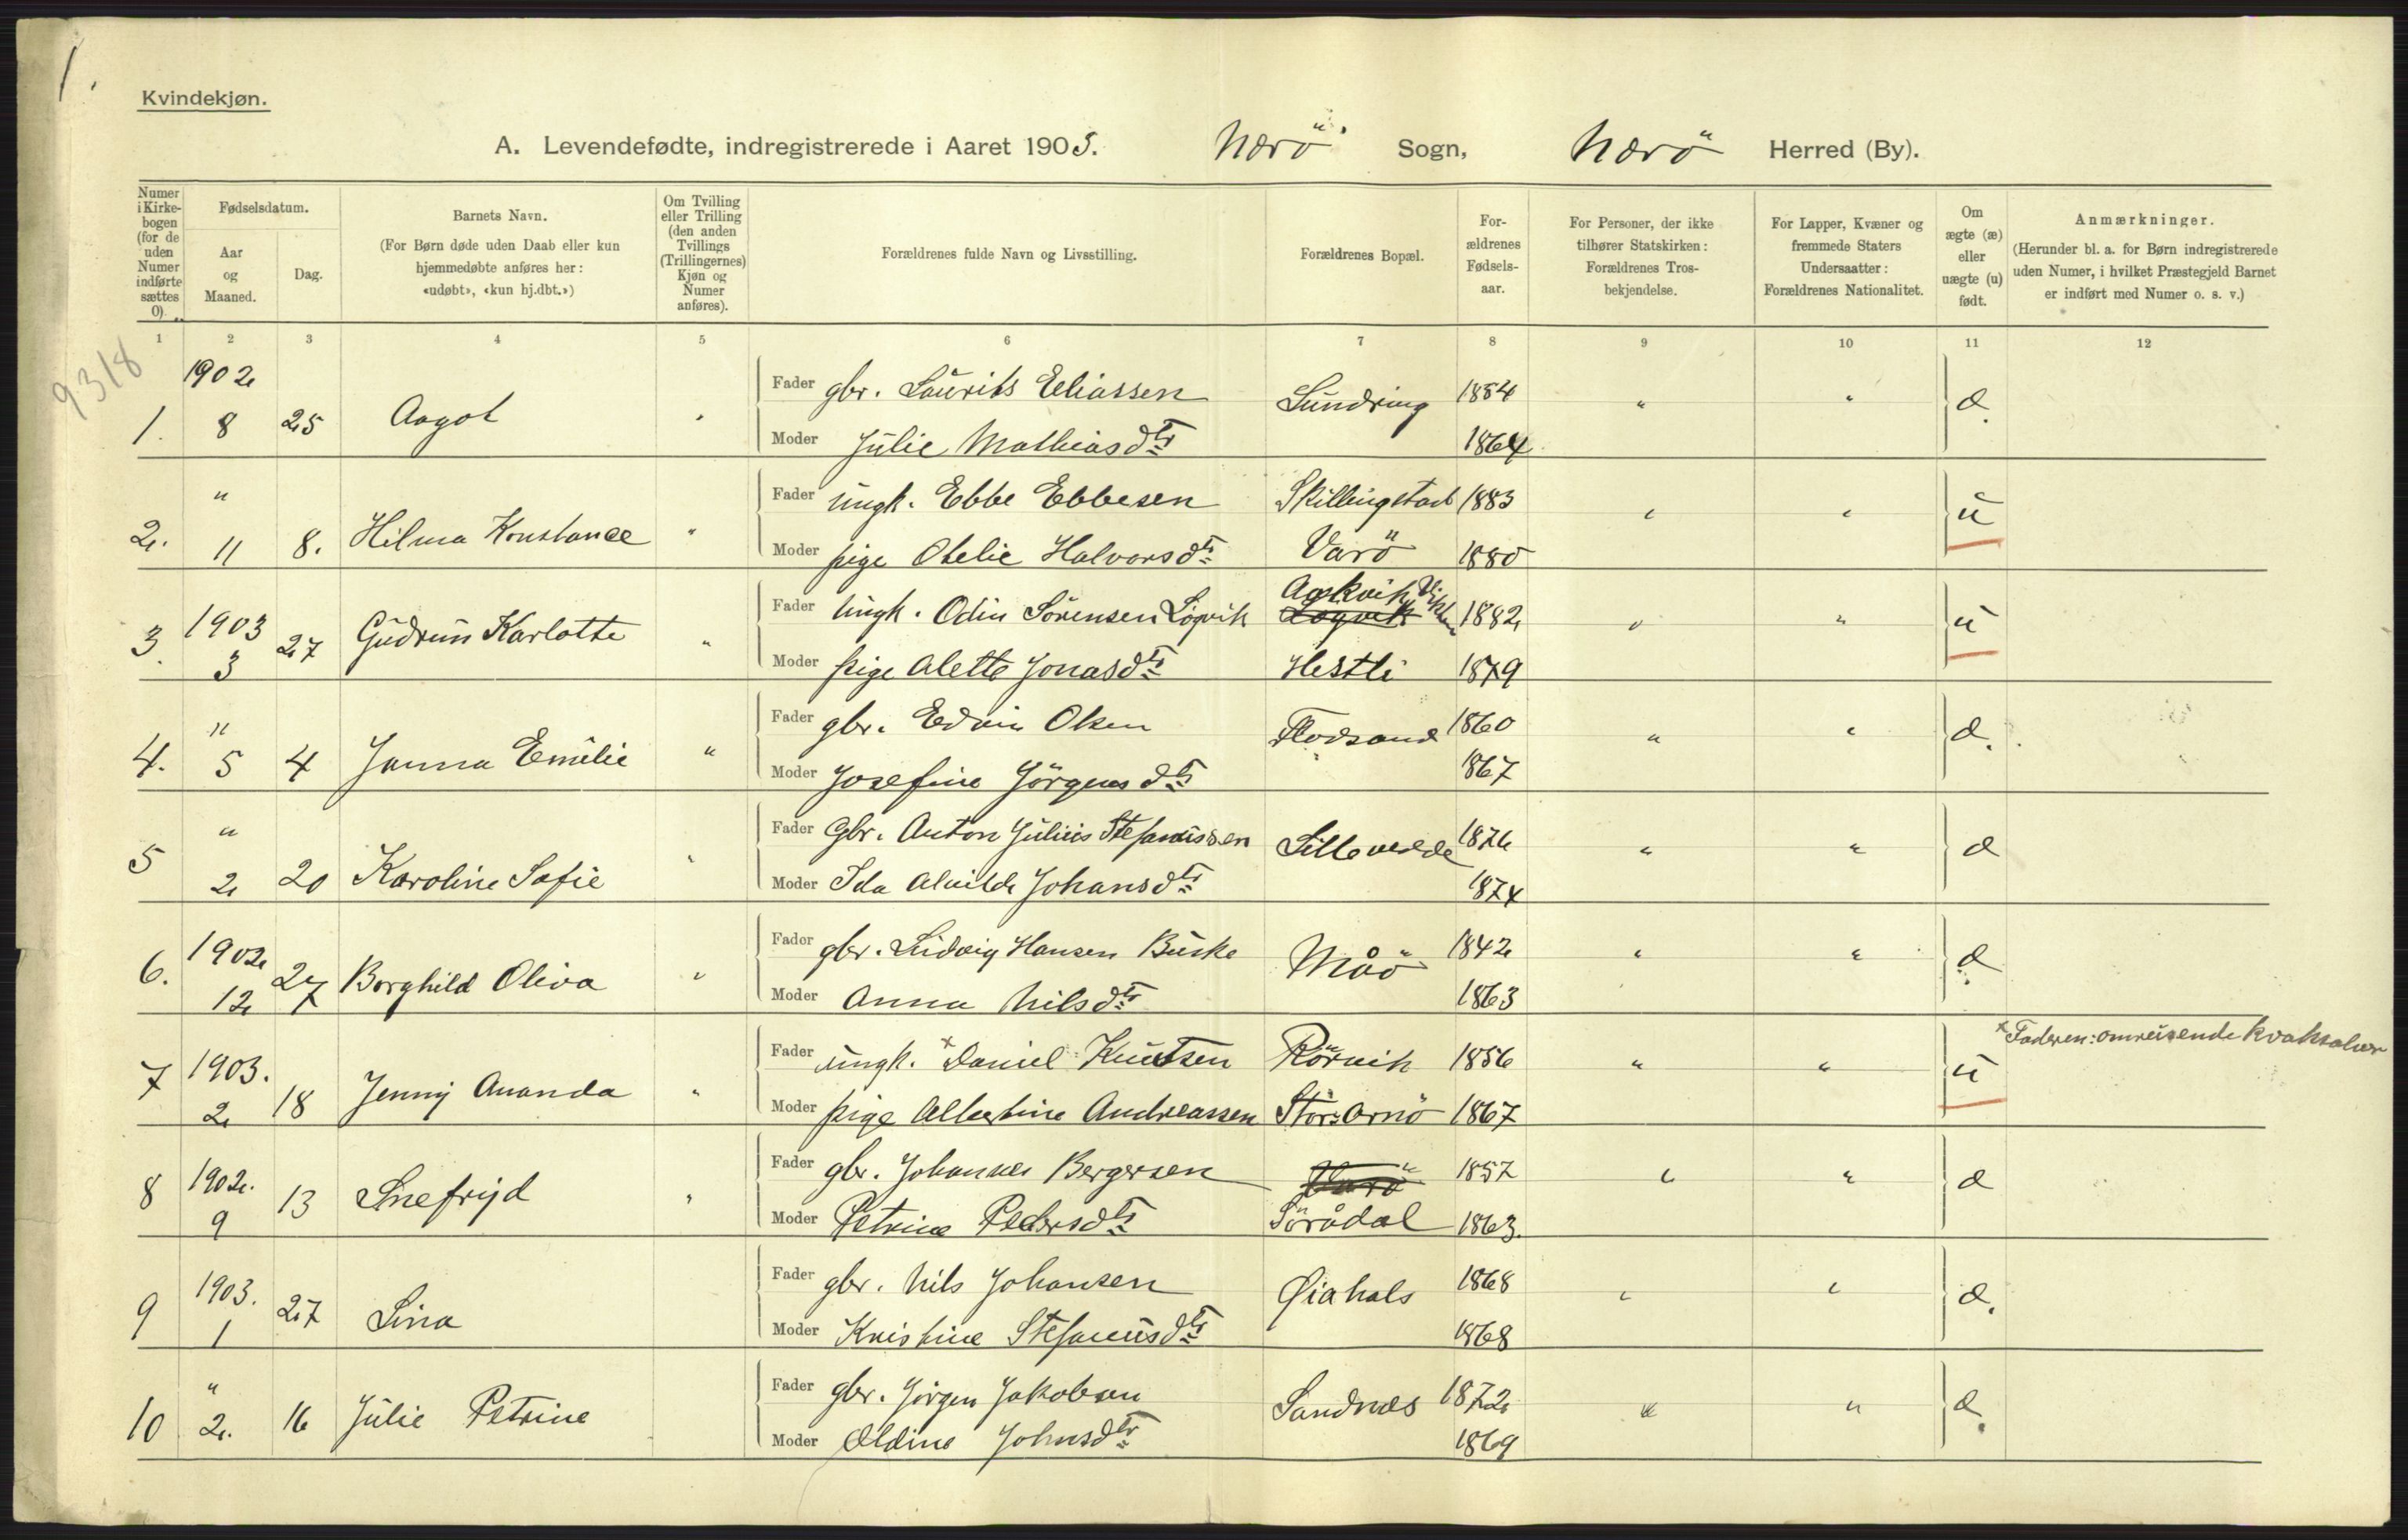 1.
Kvindekjøn.
A. Levendefødte, indregistrerede i Aaret 1903. Nærö Sogn, Nærö Herred (By).
Numer i Kirke-bogen (for de uden Numer indførte sættes 0).
Fødselsdatum.
Aar og Maaned.
Dag.
Barnets Navn.
(For Børn døde uden Daab eller kun hjemmedøbte anføres her: «udøbt», «kun hj.dbt.»)
Om Tvilling eller Trilling (den anden Tvillings (Trillingernes) Kjøn og Numer anføres).
Forældrenes fulde Navn og Livsstilling.
Forældrenes Bopæl.
For-ældrenes Fødsels-aar.
For Personer, der ikke tilhører Statskirken: Forældrenes Tros-bekjendelse.
For Lapper, Kvæner og fremmede Staters Undersaatter: Forældrenes Nationalitet.
Om ægte (æ) eller uægte (u) født.
Anmærkninger.
(Herunder bl. a. for Børn indregistrerede uden Numer, i hvilket Præstegjeld Barnet er indført med Numer o. s. v.)
1 2 3 4 5 6 7 8 9 10 11 12
9318
1902
Fader gbr. Laurits Eliassen Lundring 1854 " "
1. 8 25 Aagot " æ.
Moder Julie Mathiasdtr 1864
" Fader ungk. Ebbe Ebbesen Skillingstad 1883 " " u
2. 11 8. Hilma Konstance "
Moder pige Otelie Halvorsdtr Varö 1880
Fader ungk. Odin Sörensen Lögvik 1882 " " u
3. 1903 3 27 Gudrun Karlotte "
Moder pige Alette Jonasdtr Hestli 1879
" Fader gbr. Edvin Olsen Flosand 1860 " " æ.
4. 5 4 Janna Emilie "
Moder Josefine Jörgensdtr 1867
" Fader Gbr. Anton Julius Stefanussen 1876 " " æ
5 2 20 Karoline Sofie "
Moder Ida Alvilde Johansdtr 1874
1902 Fader gbr. Ludvig Hansen Buske Måö 1842 " " æ
6. 12 27 Borghild Oliva "
Moder Anna Nilsdtr 1863
x Faderen: omreisende kvaksalver
1903. Fader ungk. x Daniel Knutsen Rörvik 1856 " " u
7 2 18 Jenny Ananda "
Moder pige Albertine Andreassen Stor-Arnö 1867
1902. Fader gbr. Johannes Bergersen Varö 1857 " " æ
8 9 13 Snefryd "
Moder Petrine Pedersdtr Sörådal 1863.
1903. Fader gbr. Nils Johansen Øiahals 1868 " " æ.
9 1 27 Lina
Moder Kristine Stefanusdtr 1868
" Fader gbr. Jörgen Jakobsen Sandnæs 1872 " " æ.
10 2. 16 Julie Petrine
Moder Oldine Johnsdtr 1869